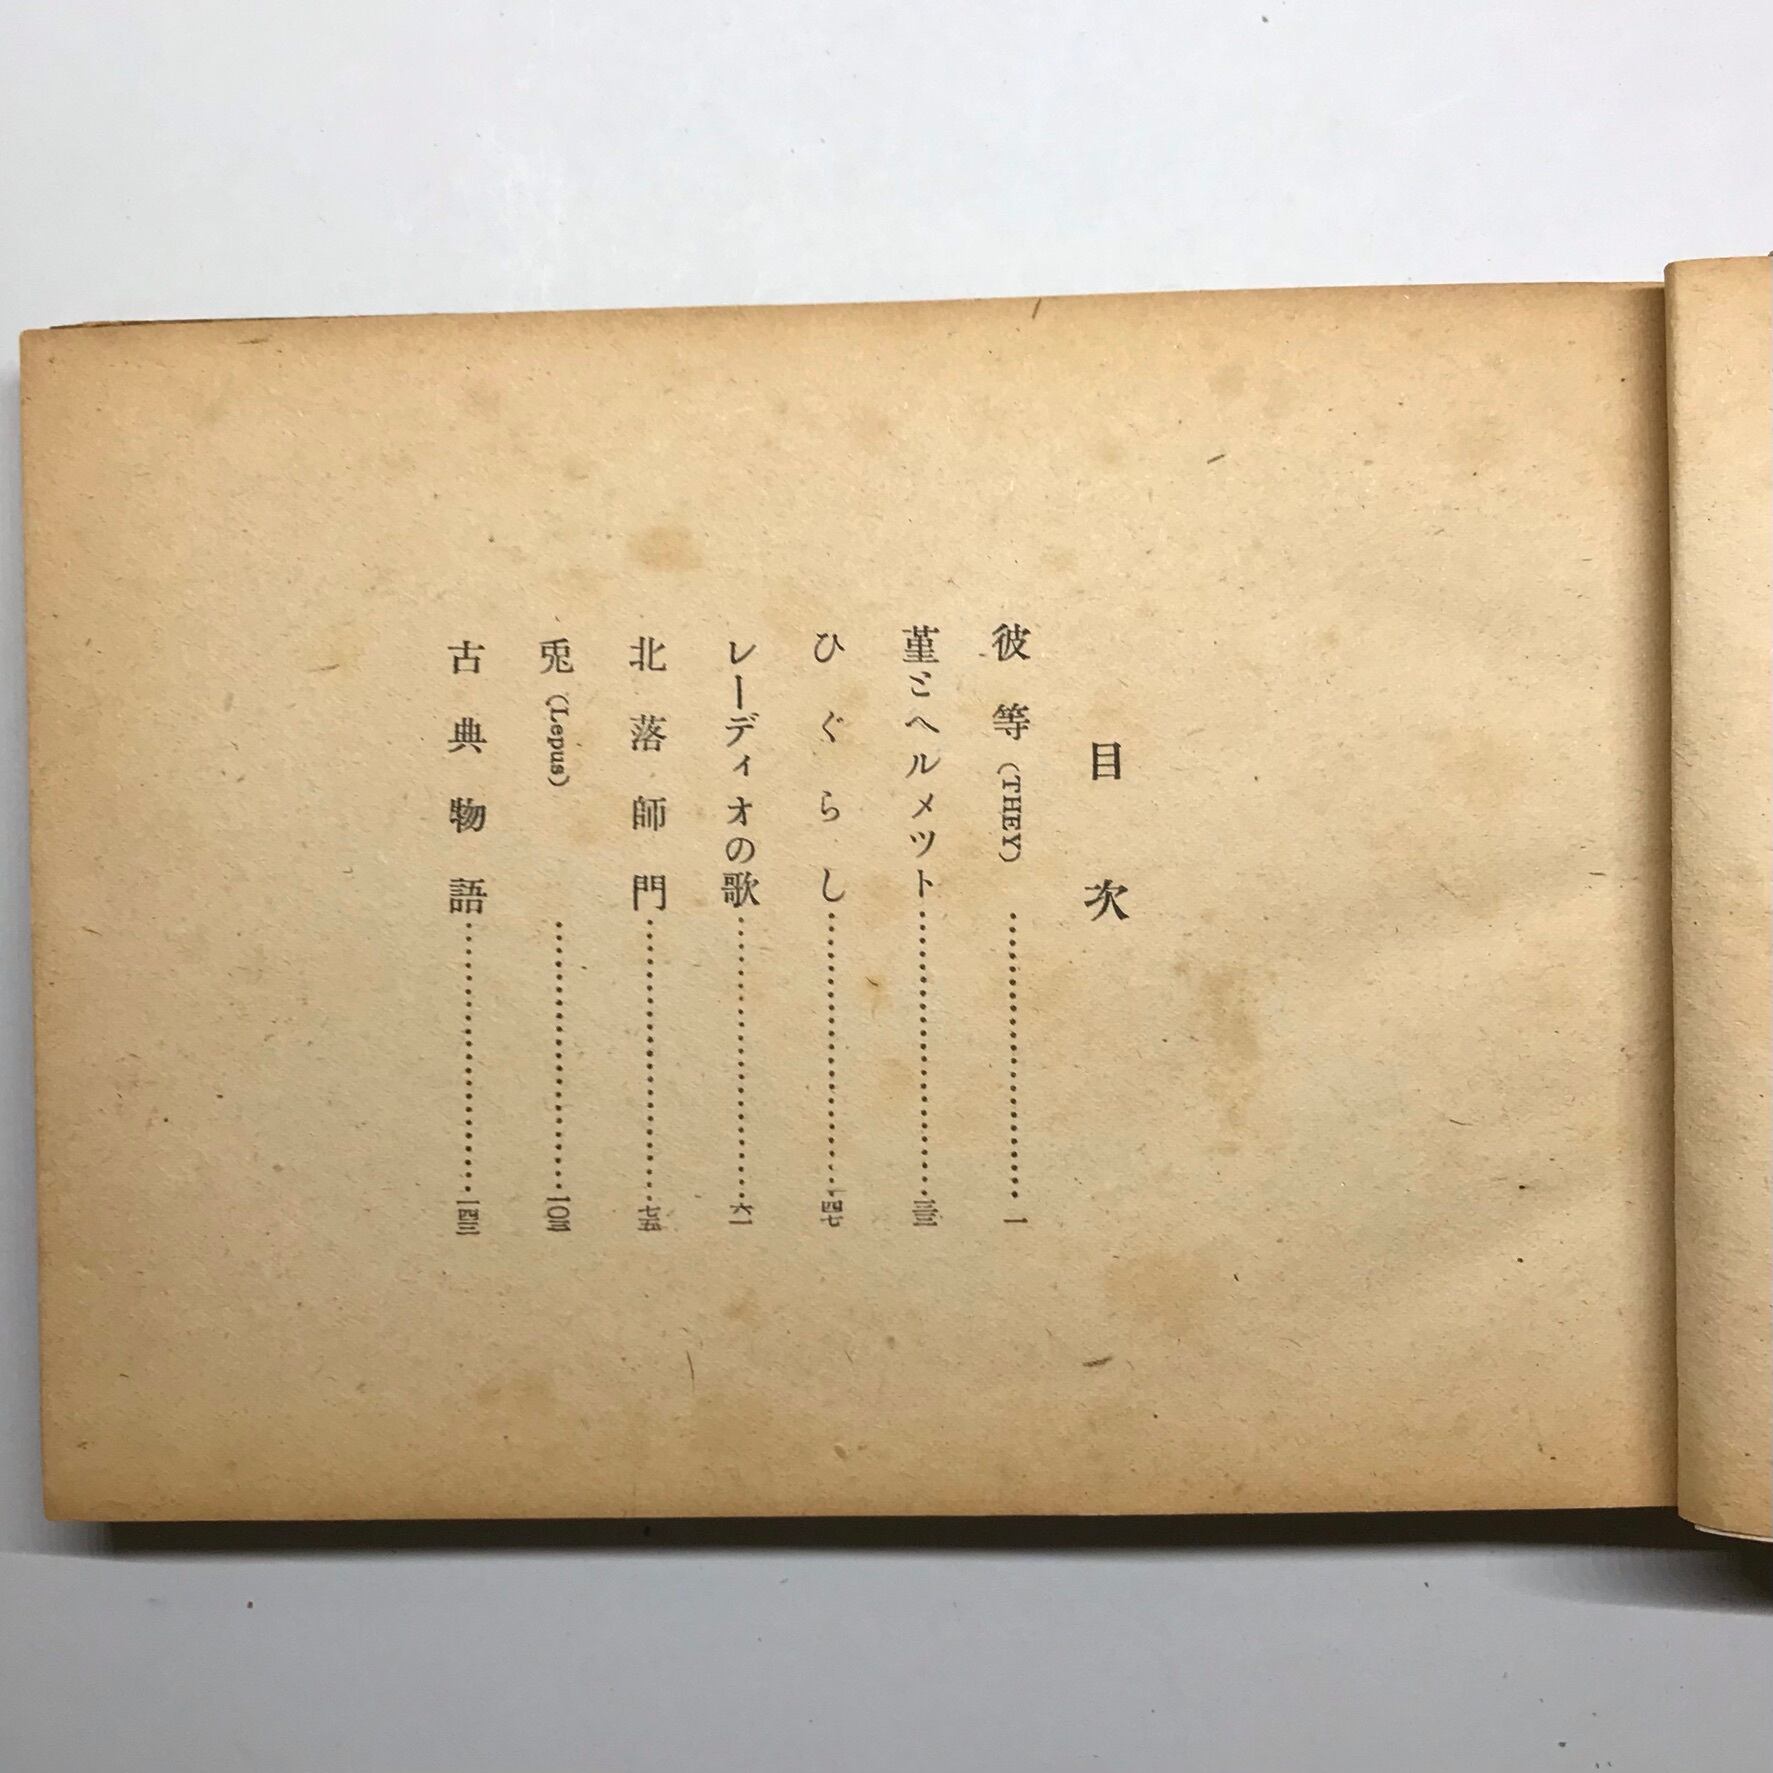 目次
彼等（THEY）…………………一
菫とヘルメツト…………………三三
ひぐらし…………………四七
レーディオの歌…………………六一
北落師門…………………七五
兎（Lepus）…………………一〇五
古典物語…………………一四三